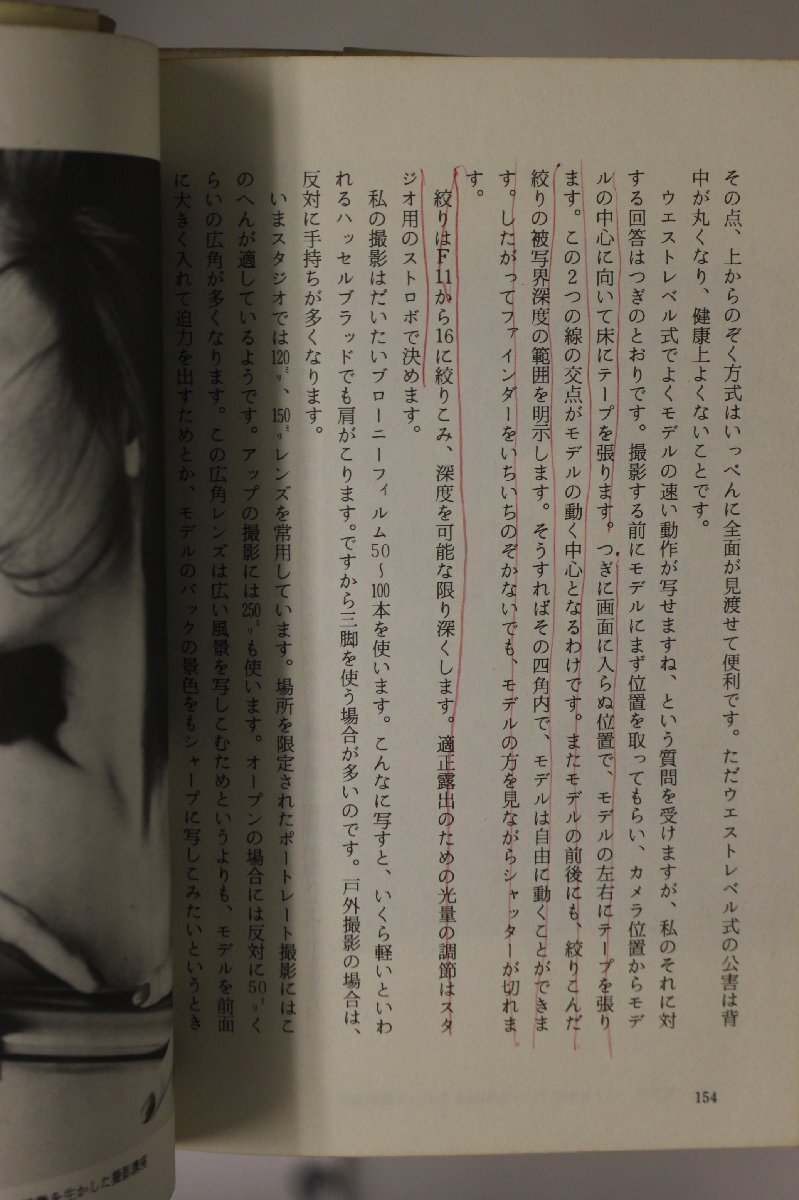 その点、上からのぞく方式はいっぺんに全面が見渡せて便利です。ただウエストレベル式の公害は背
中が丸くなり、健康上よくないことです。
ウエストレベル式でよくモデルの速い動作が写せますね、という質問を受けますが、私のそれに対
する回答はつぎのとおりです。撮影する前にモデルにまず位置を取ってもらい、カメラ位置からモデ
ルの中心に向いて床にテープを張ります。つぎに画面に入らぬ位置で、モデルの左右にテープを張り
ます。この2つの線の交点がモデルの動く中心となるわけです。またモデルの前後にも、絞りこんだ
絞りの被写界深度の範囲を明示します。そうすればその四角内で、モデルは自由に動くことができま
す。したがってファインダーをいちいちのぞかないでも、モデルの方を見ながらシャッターが切れま
す。
絞りはF11から16に絞りこみ、深度を可能な限り深くします。適正露出のための光量の調節はスタ
ジオ用のストロボで決めます。
私の撮影はだいたいブローニーフィルム50〜100本を使います。こんなに写すと、いくら軽いといわ
れるハッセルブラッドでも肩がこります。ですから三脚を使う場合が多いのです。戸外撮影の場合は、
反対に手持ちが多くなります。
いまスタジオでは120ミリ、150ミリレンズを常用しています。場所を限定されたポートレート撮影にはこ
のへんが適しているようです。アップの撮影には250ミリも使います。オープンの場合には反対に50ミリく
らいの広角が多くなります。この広角レンズは広い風景を写しこむためというよりも、モデルを前面
に大きく入れて迫力を出すためとか、モデルのバックの景色をもシャープに写しこみたいというとき
154
を生かした撮影講座